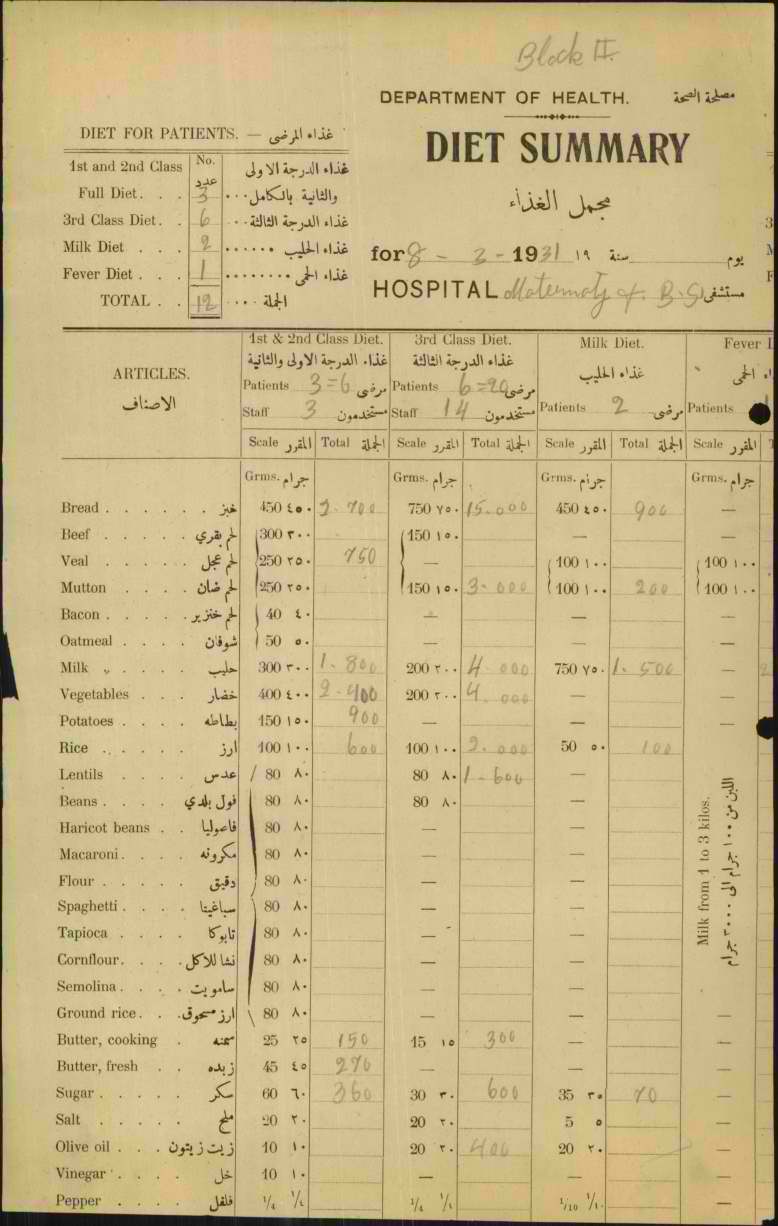 Block II.
DEPARTMENT OF HEALTH. مصلحة الصحة
DIET SUMMARY
مجمل الغذاء
for 8 - 3 - 1931 ١٩ سنة يوم
HOSPITAL Maternaty of B.G مستشفى
DIET FOR PATIENTS. — غذاء المرضى
1st and 2nd Class No. عدد غذاء الدرجة الاولى
Full Diet. . . 3 والثانية بالكامل . . .
3rd Class Diet. . 6 غذاء الدرجة الثالثة . .
Milk Diet . . . 2 غذاء الحليب . . . . . .
Fever Diet . . . 1 غذاء الحمى . . . . . . . .
TOTAL . . 12 الجملة . . . .
ARTICLES. الاصناف
1st & 2nd Class Diet. 3rd Class Diet. Milk Diet. Fever
غذاء الدرجة الاولى والثانية غذاء الدرجة الثالثة غذاء الحليب الحمى
Patients 3=6 مرضى Patients 6=20 مرضى Patients 2 مرضى Patients
Staff 3 مستخدمون Staff 14 مستخدمون
Scale المقرر Total الجملة Scale المقرر Total الجملة Scale المقرر Total الجملة Scale المقرر T
Grms. جرام Grms. جرام Grms. جرام Grms. جرام
Bread . . . . . . خبز 450 ٤٥٠ 2.700 750 ٧٥٠ 15.000 450 ٤٥٠ 900 —
Beef . . . . . لحم بقري 300 ٣٠٠ 150 ١٥٠ — —
Veal . . . . . لحم عجل 250 ٢٥٠ 750 — 100 ١٠٠ 100 ١٠٠
Mutton . . . . لحم ضان 250 ٢٥٠ 150 ١٥٠ 3.000 100 ١٠٠ 200 100 ١٠٠
Bacon . . . . لحم خنزير 40 ٤٠ — — —
Oatmeal . . . . شوفان 50 ٥٠ — — —
Milk . . . . . حليب 300 ٣٠٠ 1.800 200 ٢٠٠ 4.000 750 ٧٥٠ 1.500 2
Vegetables . . . خضار 400 ٤٠٠ 2.400 200 ٢٠٠ 4.000 — —
Potatoes . . . . بطاطه 150 ١٥٠ 900 — — —
Rice . . . . . ارز 100 ١٠٠ 600 100 ١٠٠ 2.000 50 ٥٠ 100 —
Lentils . . . . عدس 80 ٨٠ 80 ٨٠ 1.600 —
Beans . . . . فول بلدي 80 ٨٠ 80 ٨٠ —
Haricot beans . . فاصوليا 80 ٨٠ — —
Macaroni. . . . مكرونه 80 ٨٠ — —
Flour . . . . . دقيق 80 ٨٠ — —
Spaghetti . . . . سباغيتا 80 ٨٠ — —
Tapioca . . . . تابوكا 80 ٨٠ — —
Cornflour. . . . نشا للاكل 80 ٨٠ — —
Semolina . . . . 80 ٨٠ — —
Ground rice. . . ارز مسحوق 80 ٨٠ — —
Milk from 1 to 3 kilos.
اللبن من ١٠٠٠ جرام الى ٣٠٠٠ جرام
Butter, cooking . سمنه 25 ٢٥ 150 15 ١٥ 300 — —
Butter, fresh . . زبده 45 ٤٥ 270 — — —
Sugar . . . . سكر 60 ٦٠ 360 30 ٣٠ 600 35 ٣٥ 70 —
Salt . . . . . ملح 20 ٢٠ 20 ٢٠ 5 ٥ —
Olive oil . . . زيت زيتون 10 ١٠ 20 ٢٠ 400 20 ٢٠ —
Vinegar . . . . خل 10 ١٠ — — —
Pepper . . . . فلفل 1/4 ¼ 1/4 ¼ 1/10 —